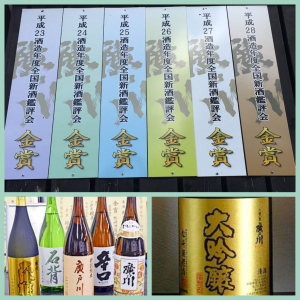 平成23酒造年度全国新酒鑑評会
金賞
平成24酒造年度全国新酒鑑評会
金賞
平成25酒造年度全国新酒鑑評会
金賞
平成26酒造年度全国新酒鑑評会
金賞
平成27酒造年度全国新酒鑑評会
金賞
平成28酒造年度全国新酒鑑評会
金賞
石背
廣戸川
辛口
大吟醸